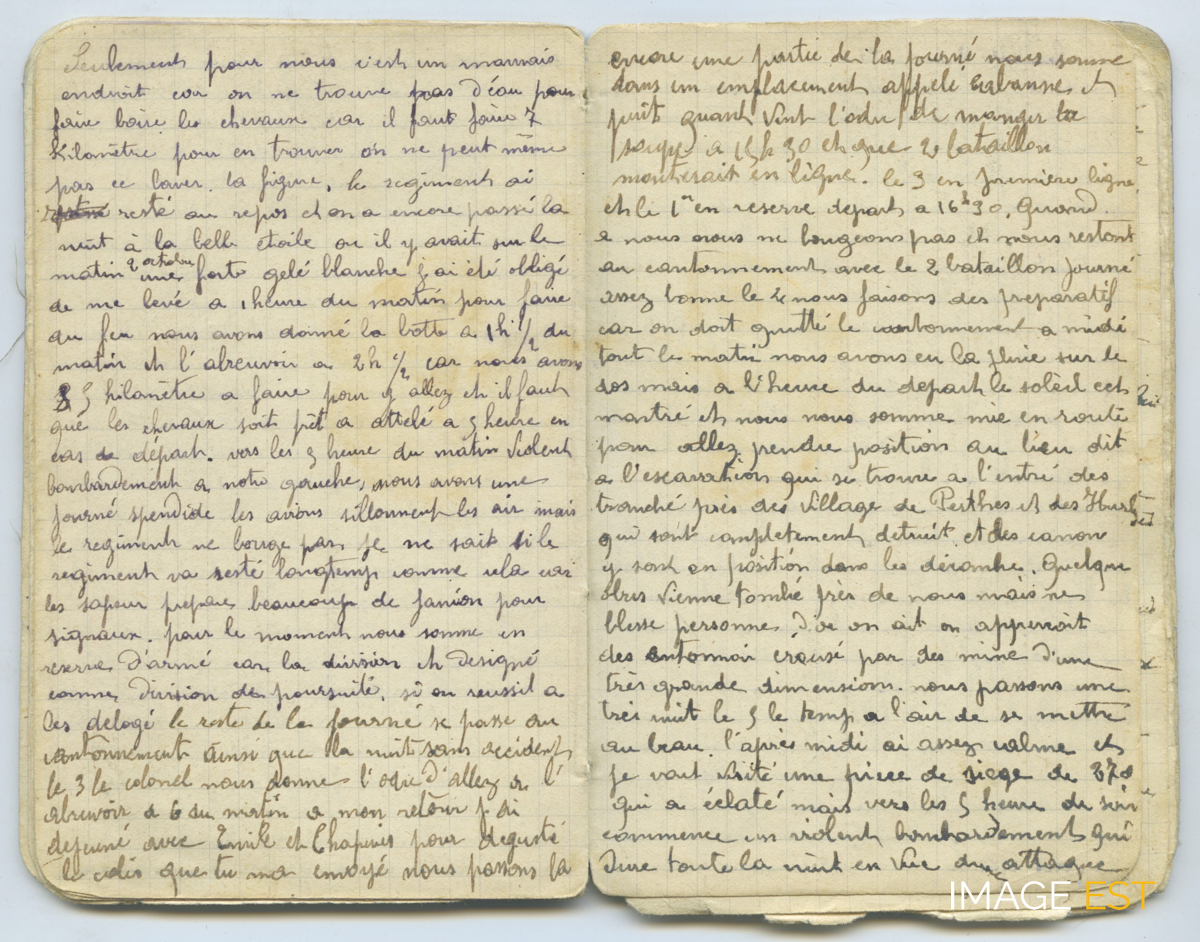 Seulement pour nous c'est un mauvais
endroit car on ne trouve pas d'éau pour
faire boire les chevaux car il faut faire 7
Kilomètre pour en trouver on ne peut même
pas ce laver la figure, le regiment ai
resté au repos et on a encore passé la
nuit à la belle etoile ou il y avait sur le
matin 2 octobre une forte gelé blanche j'ai été obligé
de me levé a 1 heure du matin pour faire
du feu nous avons donné la botte a 1h 1/2 du
matin et l'abreuvoir a 2h 1/2 car nous avons
5 kilomètre a faire pour y allez et il faut
que les chevaux soit prêt a attelé a 5 heure en
cas de départ. vers les 3 heure du matin violent
bombardement a notre gauche, nous avons une
journé spendide les avions sillonnent les air mais
le regiment ne bouge pas, je ne sait si le
regiment va resté longtemp comme cela car
les sapeur prepare beaucoup de fanion pour
signaux. pour le moment nous somme en
reserve d'armé car la division et designé
comme division de poursuite, si on reussil a
les délogé le reste de la journé se passe au
cantonnement ainsi que la nuit sans accident,
le 3 le colonel nous donne l'odre d'allez a l'
abreuvoir a 6 du matin a mon retour j'ai
dejeuné avec Emile et Chapuis pour degusté
le colis que tu ma envoyé nous passons la
encore une partie de la journé nous somme
dans un emplacement appelé cabanne et
puit quant vint l'odre de manger la
soupe a 15h 30 et que 2 bataillon
monterait en ligne. le 3 en première ligne
et le 1er en reserve depart a 16h30. Quand
a nous nous ne bougeons pas et nous restont
au cantonnement avec le 2 bataillon journé
assez bonne le 4 nous faisons des preparatif
car on doit quitté le cantonnement a midi
tout le matin nous avons eu la pluie sur le
dos mais a l'heure du depart le soleil cet
montré et nous nous somme mie en route
pour allez prendre position au lieu dit
a l'escarration qui se trouve a l'entré des
tranché près des village de Perthes et des Hurlus
qui sont completement detruit et des canon
y sont en position dans les décombre. Quelque
obus vienne tombé près de nous mais ne
blesse personne. d'où on ait on apperçoit
des entonnoir creusé par des mine d'une
très grande dimension. nous passons une
très nuit le 5 le temp a l'air de se mettre
au beau. l'après midi ai assez calme et
je vait visité une pièce de siege de 370
qui a éclaté mais vers les 5 heure du soir
commence un violent bombardement qui
dure toute la nuit en vue du attaque
IMAGE EST